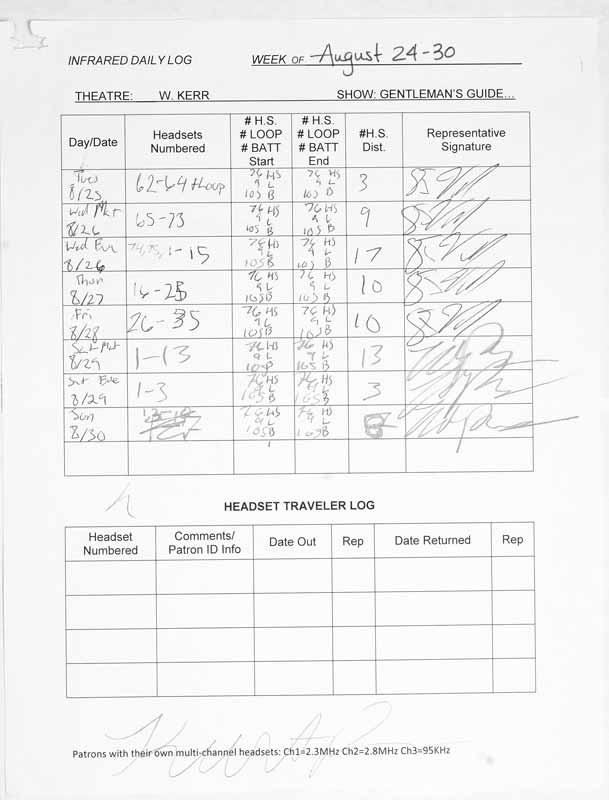 INFRARED DAILY LOG WEEK OF August 24-30
THEATRE: W. KERR SHOW: GENTLEMAN'S GUIDE...
Day/Date Headsets Numbered # H.S. # LOOP # BATT Start # H.S. # LOOP # BATT End #H.S. Dist. Representative Signature
Tues 8/25 62-64 +Loop 76 HS 9 L 105 B 76 HS 9 L 105 B 3
Wed Mat 8/26 65-73 76 HS 9 L 105 B 76 HS 9 L 105 B 9
Wed Eve 8/26 74,75,1-15 76 HS 9 L 105 B 76 HS 9 L 105 B 17
Thur 8/27 16-25 76 HS 9 L 105 B 76 HS 9 L 105 B 10
Fri 8/28 26-35 76 HS 9 L 105 B 76 HS 9 L 105 B 10
Sat Mat 8/29 1-13 76 HS 9 L 105 B 76 HS 9 L 105 B 13
Sat Eve 8/29 1-3 76 HS 9 L 105 B 76 HS 9 L 105 B 3
Sun 8/30 76 HS 9 L 105 B 76 HS 9 L 105 B
HEADSET TRAVELER LOG
Headset Numbered Comments/ Patron ID Info Date Out Rep Date Returned Rep
Patrons with their own multi-channel headsets: Ch1=2.3MHz Ch2=2.8MHz Ch3=95KHz